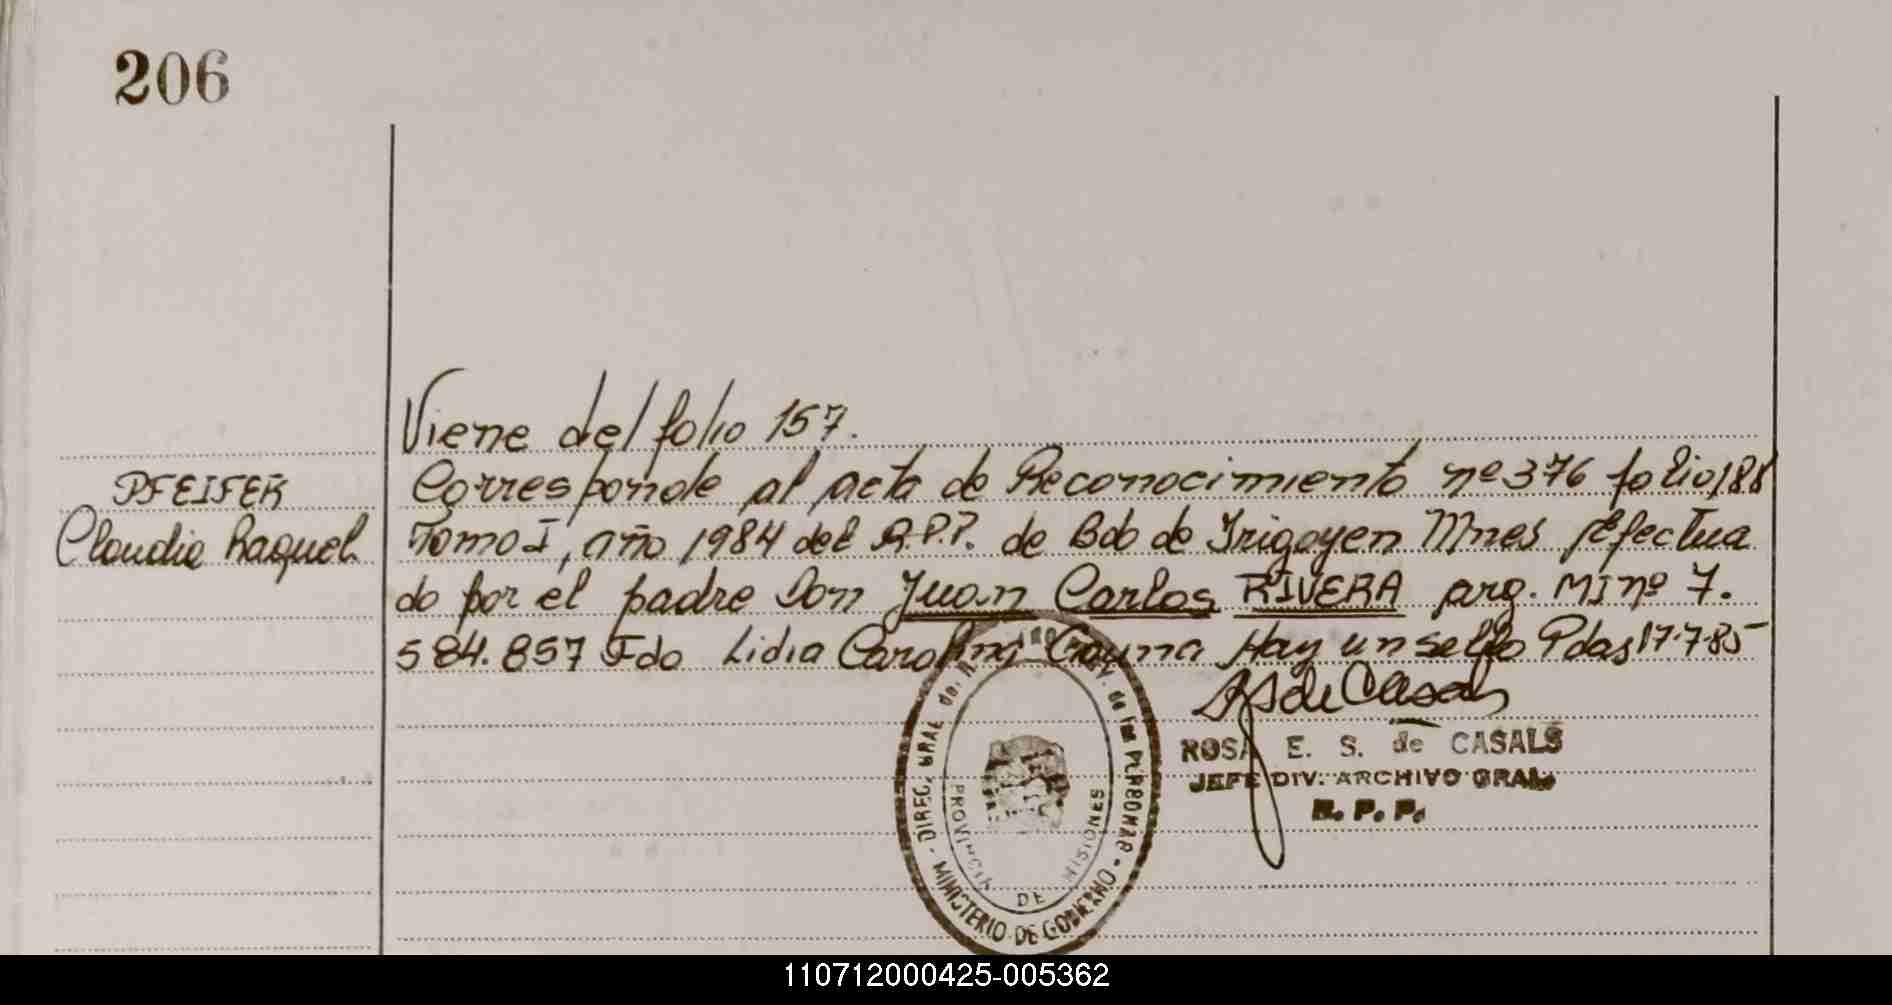 206
Viene del folio 157.
PFEIFER
Claudia Raquel
Corresponde al acta de Reconocimiento nº 376 folio 188
Tomo I, año 1984 del R.P.P. de Bdo de Irigoyen Mnes Efectua
do por el padre Don Juan Carlos RIVERA arg. MI nº 7.
584.857 Fdo Lidia Carolina Gauna Hay un sello Pdas 17-7-85
RS de Casals
ROSA E. S. de CASALS
JEFE DIV. ARCHIVO GRAL.
R. P. P.
DIREC. GRAL. de las PERSONAS
MINISTERIO DE GOBIERNO
PROVINCIA DE MISIONES
110712000425-005362